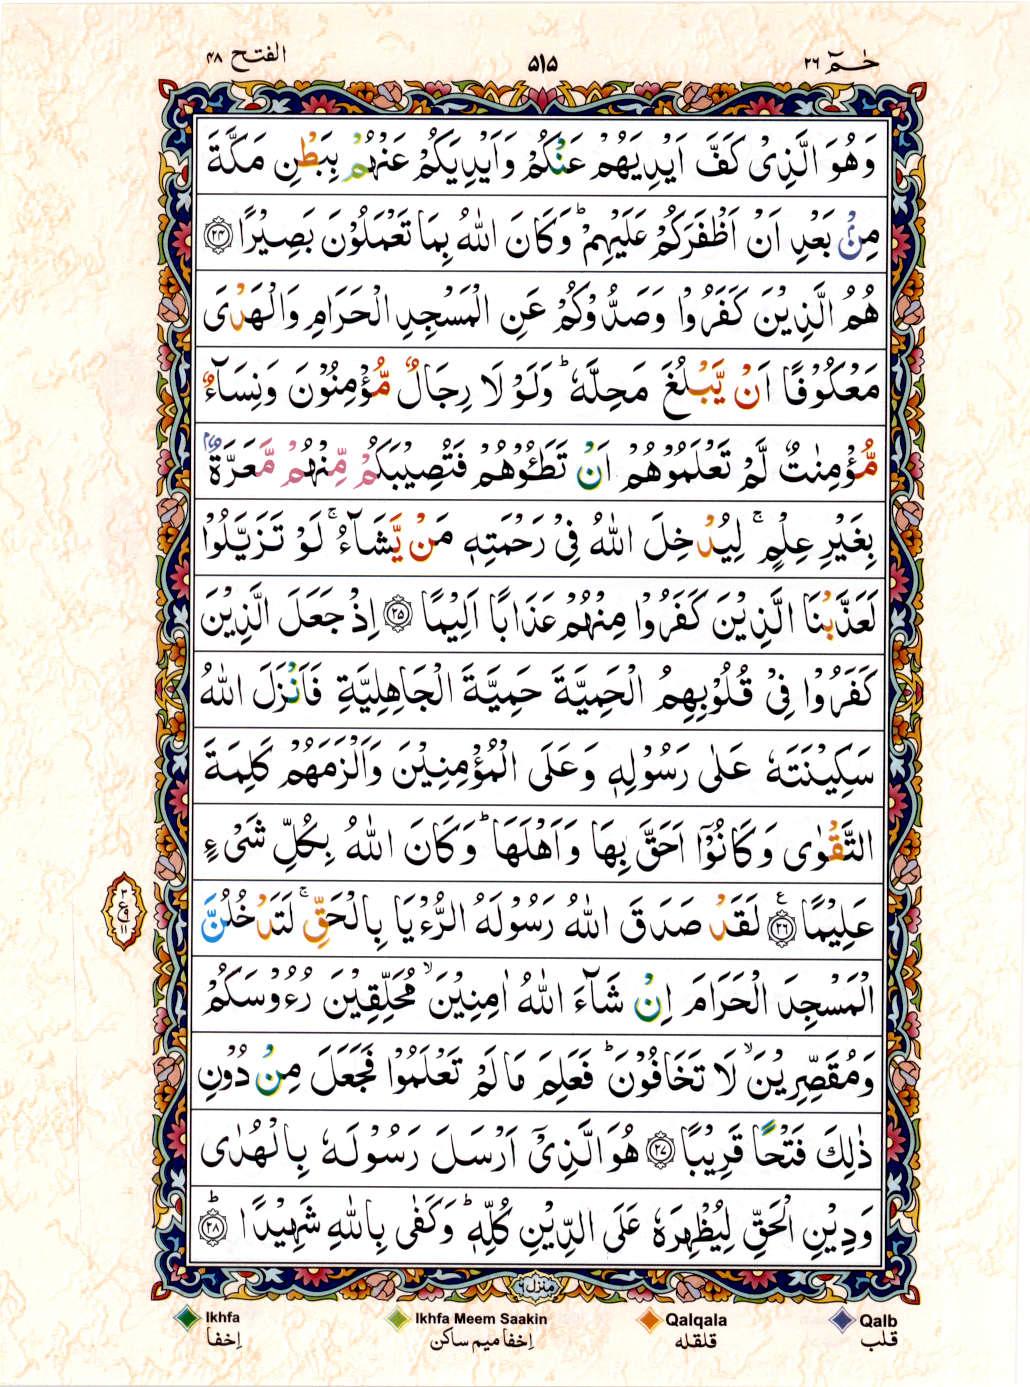 حٰمٓ ٢٦
۵۱۵
الفتح ۴۸
وَهُوَ الَّذِیْ كَفَّ اَیْدِیَهُمْ عَنْكُمْ وَاَیْدِیَكُمْ عَنْهُمْ بِبَطْنِ مَكَّةَ
مِنْۢ بَعْدِ اَنْ اَظْفَرَكُمْ عَلَیْهِمْ ؕ وَكَانَ اللّٰهُ بِمَا تَعْمَلُوْنَ بَصِیْرًا ﴿۲۴﴾
هُمُ الَّذِیْنَ كَفَرُوْا وَصَدُّوْكُمْ عَنِ الْمَسْجِدِ الْحَرَامِ وَالْهَدْیَ
مَعْكُوْفًا اَنْ یَّبْلُغَ مَحِلَّهٗ ؕ وَلَوْ لَا رِجَالٌ مُّؤْمِنُوْنَ وَنِسَآءٌ
مُّؤْمِنٰتٌ لَّمْ تَعْلَمُوْهُمْ اَنْ تَطَـُٔوْهُمْ فَتُصِیْبَكُمْ مِّنْهُمْ مَّعَرَّةٌۢ
بِغَیْرِ عِلْمٍ ۚ لِیُدْخِلَ اللّٰهُ فِیْ رَحْمَتِهٖ مَنْ یَّشَآءُ ۚ لَوْ تَزَیَّلُوْا
لَعَذَّبْنَا الَّذِیْنَ كَفَرُوْا مِنْهُمْ عَذَابًا اَلِیْمًا ﴿۲۵﴾ اِذْ جَعَلَ الَّذِیْنَ
كَفَرُوْا فِیْ قُلُوْبِهِمُ الْحَمِیَّةَ حَمِیَّةَ الْجَاهِلِیَّةِ فَاَنْزَلَ اللّٰهُ
سَكِیْنَتَهٗ عَلٰی رَسُوْلِهٖ وَعَلَی الْمُؤْمِنِیْنَ وَاَلْزَمَهُمْ كَلِمَةَ
التَّقْوٰی وَكَانُوْۤا اَحَقَّ بِهَا وَاَهْلَهَا ؕ وَكَانَ اللّٰهُ بِكُلِّ شَیْءٍ
عَلِیْمًا ﴿۲۶﴾ ع لَقَدْ صَدَقَ اللّٰهُ رَسُوْلَهُ الرُّءْیَا بِالْحَقِّ ۚ لَتَدْخُلُنَّ
الْمَسْجِدَ الْحَرَامَ اِنْ شَآءَ اللّٰهُ اٰمِنِیْنَ ۙ مُحَلِّقِیْنَ رُءُوْسَكُمْ
وَمُقَصِّرِیْنَ ۙ لَا تَخَافُوْنَ ؕ فَعَلِمَ مَا لَمْ تَعْلَمُوْا فَجَعَلَ مِنْ دُوْنِ
ذٰلِكَ فَتْحًا قَرِیْبًا ﴿۲۷﴾ هُوَ الَّذِیْۤ اَرْسَلَ رَسُوْلَهٗ بِالْهُدٰی
وَدِیْنِ الْحَقِّ لِیُظْهِرَهٗ عَلَی الدِّیْنِ كُلِّهٖ ؕ وَكَفٰی بِاللّٰهِ شَهِیْدًا ﴿۲۸﴾ؕ
منزل ٦
Ikhfa Ikhfa Meem Saakin Qalqala Qalb
إخفا إخفا ميم ساكن قلقله قلب